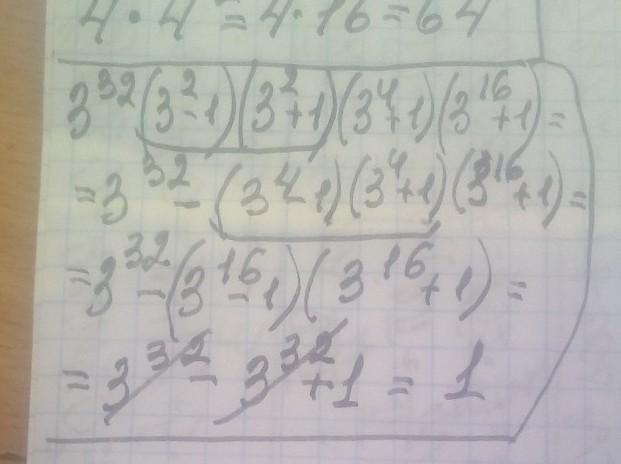 4 · 4² = 4 · 16 = 64
3³²(3²-1)(3²+1)(3⁴+1)(3¹⁶+1)=
=3³²-(3⁴-1)(3⁴+1)(3¹⁶+1)=
=3³²-(3¹⁶-1)(3¹⁶+1)=
=3³²-3³²+1=1